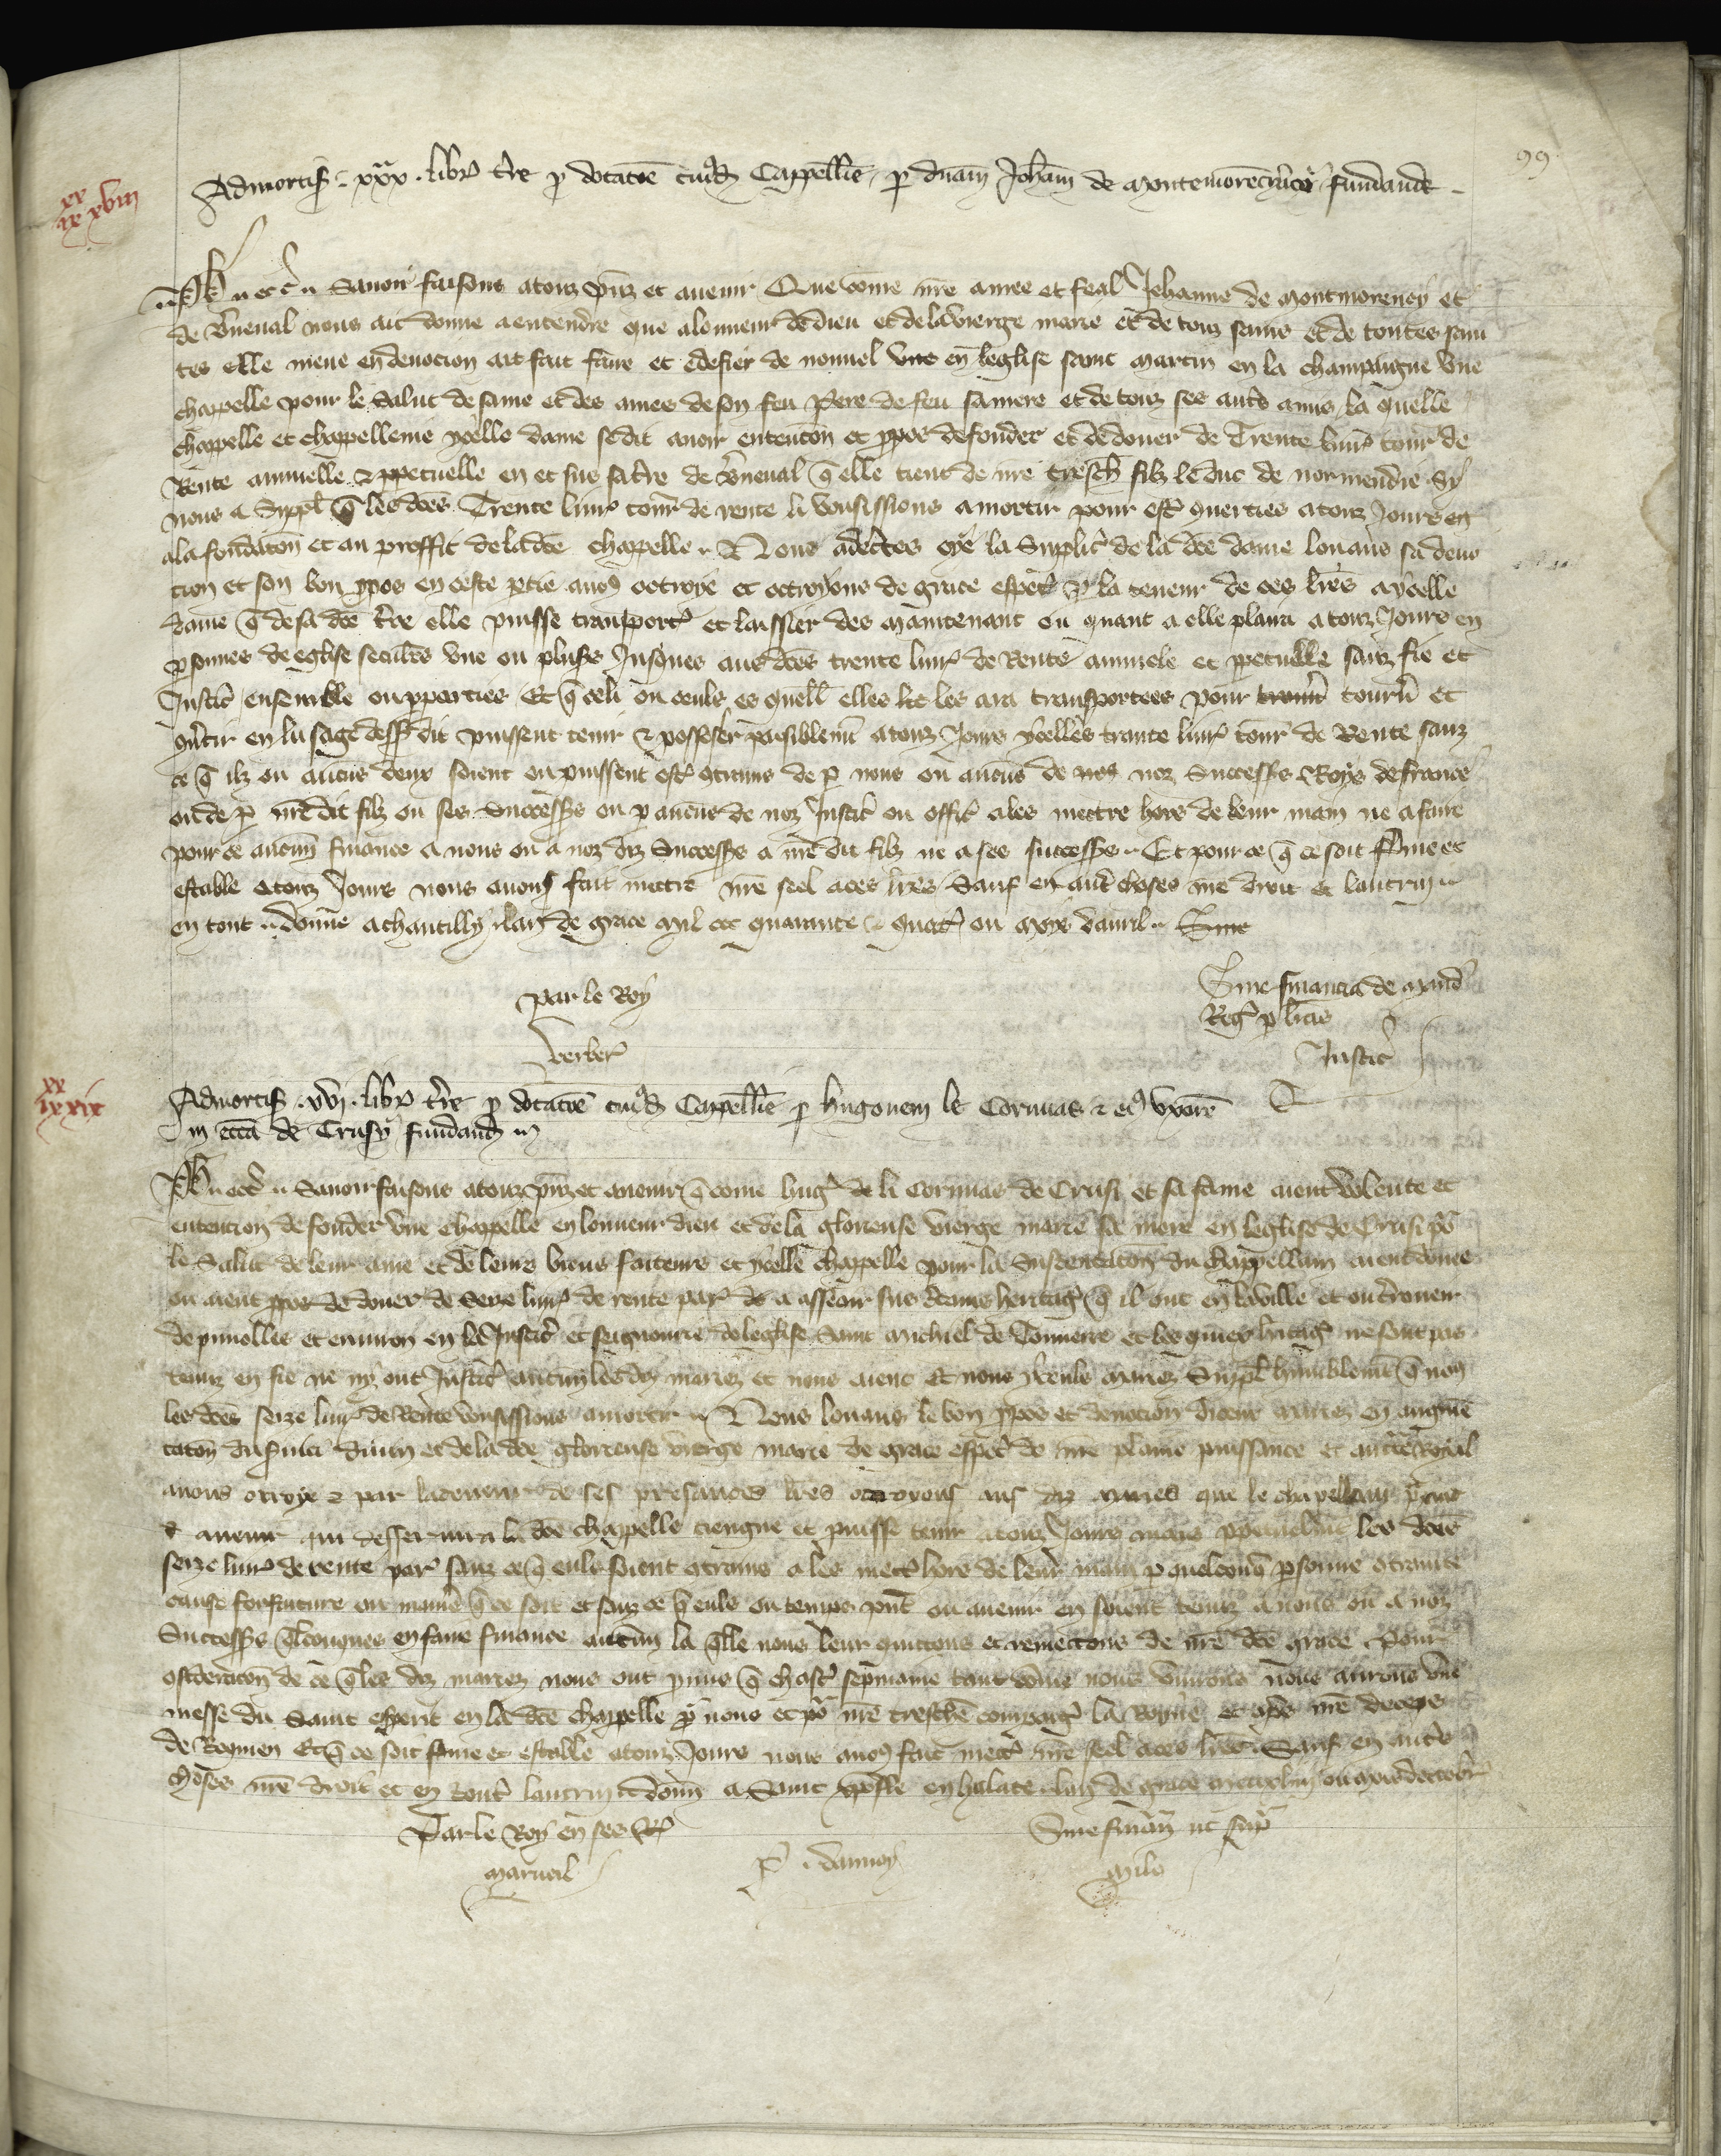 99
xx
ix xviii
Admortis. xxx. libr. t're p dotatōe cuiusd Cappellie, p dnam Joham de Montemorenciaco fundande
Ph. etc. Savoir faisons a touz pnz et avenir Que come nre amee et feal Jehanne de Montmorency et
de Verneval nous ait donne a entendre que a lonneur de dieu et de la vierge marie et de touz sains et de toutes sain
tes elle meue en devocion ait fait faire et edefier de nouvel une en leglise saint martin en la champaigne une
chappelle pour le salut de same et des ames de son feu pere de feu sa mere et de touz ses autres amis, la quelle
chappelle et chappellenie ycelle dame se dit avoir entencon et ppos de fonder et de douer de Trente livr tour de
Rente annuelle & ppetuelle en et sus sa t're de Verneval q elle tient de nre tresch filz le duc de normendie Sy
nous a suppl q les dces Trente livr tour de rente li vousissions amortir pour estr converties a touz jours en
a la fondatōn et au proffit de la dce chappelle. Nous adecertes oye la suplic de la dce dame louans sa devo
cion et son bon ppos en ceste ptie avons octroye et octroyons de grace especl p la teneur de ces lres a ycelle
dame q de sa dce t're elle puisse transporter et laissier des maintenant ou quant a elle plaira a touz jours en
psonnes de eglise seculres une ou plusrs Jusques aus dces trente livr de Rente annuele et ppetuelle sanz fie et
Justic ensemble ou pparties Et q celi ou ceuls es quell elles les ara transportees pour tourn et
convtir en lusage dessdit puissent tenir & posseser paisiblemt a touz jours ycelles trante livr tour de Rente sanz
ce q ilz ou aucuns deux soient ou puissent estr contrains de p nous ou aucuns de nos noz Successrs Roys de france
ou de p nre dit filz ou ses Successrs ou p aucuns de noz Justic ou offic a les mettre hors de leur main ne a faire
pour ce aucune finance a nous ou a noz diz Successrs a nre dit filz ne a ses successrs. Et pour ce q ce soit ferme et
estable a touz Jours nous avons fait mettre nre seel a ces lres Sauf en autres choses nre droit et lautruy
en tout. donne a chantilly lan de grace mil ccc quarante quatr ou moys davril. Sine
Par le Roy
Verber
Sine financia de mand
Reg p licas
Justic
xx
ix xix
Admortis. xvi. libr. t're p dotatōe cuiusd Cappellie p hugonem le Cornuas & ei uxore
In eccia de Crusy fundand
Ph. etc. Savoir faisons a touz pnz et avenir q come hug de li Cornuas de Crusi et sa fame aient volente et
entencion de fonder une chappelle en lonneur dieu et de la glorieuse vierge marie sa mere en leglise de Crusi po
le salut de leur ame et de leurs biens faiteurs et ycelle chappelle pour la sustentacion du chappellain aient doue
ou aient ppos de douer de seze livr de rente par de a asseoir sus certains heritag q il ont en la ville et ou
de pimolles et environ en la Justic et seignourie de leglise Saint Michiel de Tonnerre et les quiex hitag ne sont pas
tenuz en fie ne ny ont Justic aucun les diz mariez et nous aient et nous yceuls mariez Suppl humblemt q nous
les dces seize livr de Rente vousissions amortir. Nous louans le bon ppos et devocion diceux mariez en augmē
tatōn du svice divin et de la dce glorieuse vierge marie de grace especl de nre plaine puissance et auctte Royal
avons octroye & par la teneur de ses presances lres octroyons aus diz mariez que le chapellain presant
& avenir qui desservira la dce chappelle tiengne et puisse tenir a touz Jours mais ppetuelmt les dces
seize livr de rente par sanz ce q euls soient contrains a les mectr hors de leur main p quelconq psonne contrainte
cause forfaiture ou maniere q ce soit et sanz ce q euls ou temps pnt ou avenir en soient tenuz a nous ou a noz
Successrs qlconques en faire finance aucune la qlle nous leur quittons et remettons de nre dce grace. Pour
consideracon de ce q les diz mariez nous ont pmis q chascr sepmaine tant come nous vivrons nous aurons une
messe du Saint esperit en la dce chappelle po nous et po nre treschre compaigne la Royne et apres nre deceps
de Requiem Et q ce soit ferme et estable a touz Jours nous avons fait mectr nre seel a ces lres Sauf en autres
choses nre droit et en tout lautruy. Donn a Saint xpofle en halate lan de grace mccc xliii ou mois doctobr
Par le Roy en ses Req
Marueil
P. dannoy
Sine finan ut supra
Milo